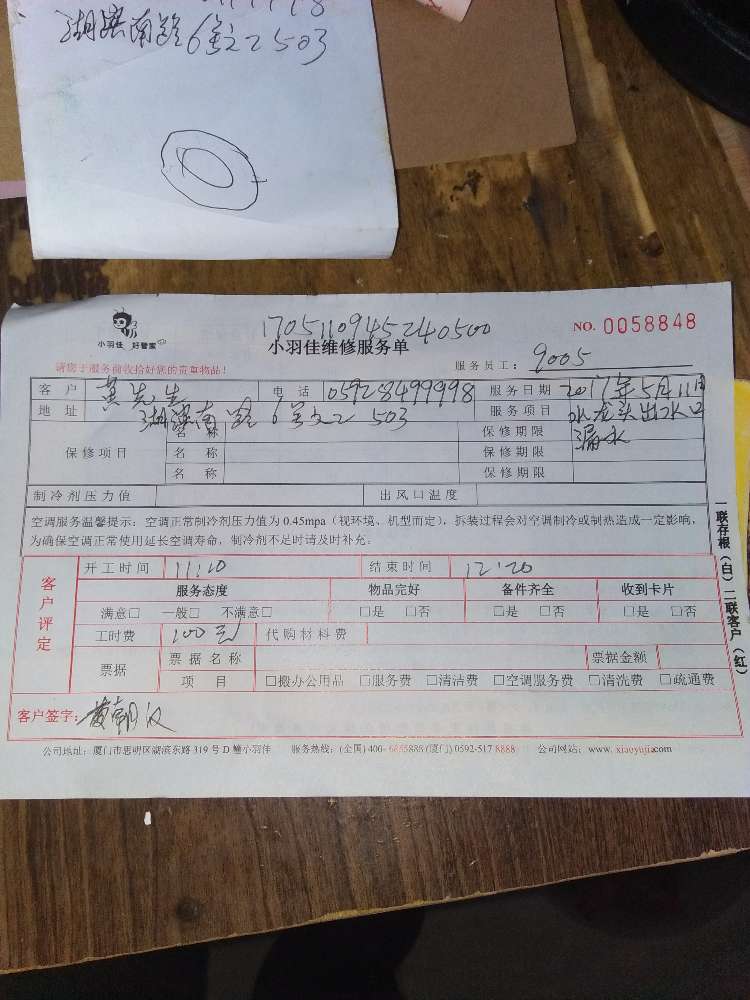 湖滨南路6号之2 503
1705110945240500
小羽佳 好管家
小羽佳维修服务单
NO. 0058848
请您于服务前收拾好您的贵重物品！
服务员工： 9005
客户 黄先生 电话 05928499998 服务日期 2017年5月11日
地址 湖滨南路6号之2 503 服务项目 水龙头出水口
漏水
保修项目 名称 保修期限
名称 保修期限
名称 保修期限
制冷剂压力值 出风口温度
空调服务温馨提示：空调正常制冷剂压力值为 0.45mpa（视环境、机型而定），拆装过程会对空调制冷或制热造成一定影响，
为确保空调正常使用延长空调寿命，制冷剂不足时请及时补充。
客户评定
开工时间 11:10 结束时间 12:20
服务态度 物品完好 备件齐全 收到卡片
满意□ 一般□ 不满意□ □是 □否 □是 □否 □是 □否
工时费 100元 代购材料费
票据 票据名称 票据金额
项目 □搬办公用品 □服务费 □清洁费 □空调服务费 □清洗费 □疏通费
客户签字：
公司地址：厦门市思明区湖滨东路 319 号 D 幢小羽佳 服务热线：(全国) 400- 6655888 (厦门) 0592-517 8888 公司网站：www. xiaoyujia.com
一联存根（白）二联客户（红）